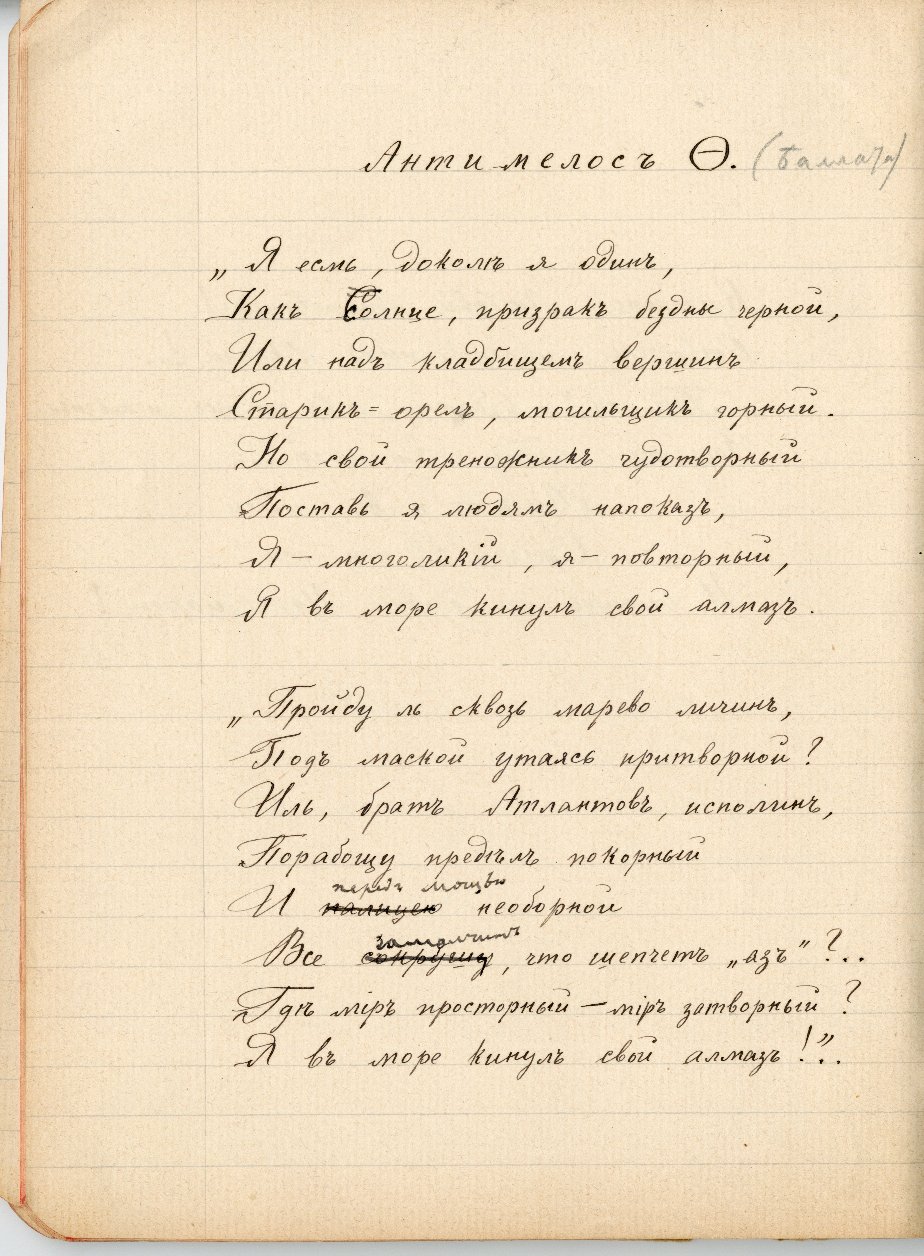 Антимелосъ Ѳ. (Баллада)
„Я есмь, доколѣ я одинъ,
Какъ Солнце, призракъ бездны черной,
Или надъ кладбищемъ вершинъ
Старикъ=орелъ, могильщикъ горный.
Но свой треножникъ чудотворный
Поставь я людямъ напоказъ,
Я – многоликій, я – повторный,
Я въ море кинулъ свой алмазъ.
„Пройду ль сквозь марево личинъ,
Подъ маской утаясь притворной?
Иль, братъ Атлантовъ, исполинъ,
Порабощу предѣлъ покорный
передъ мощью
И палицею необорной
замолчитъ
Все сокрушу, что шепчетъ „азъ“?..
Гдѣ міръ просторный – міръ затворный?
Я въ море кинулъ свой алмазъ!“..